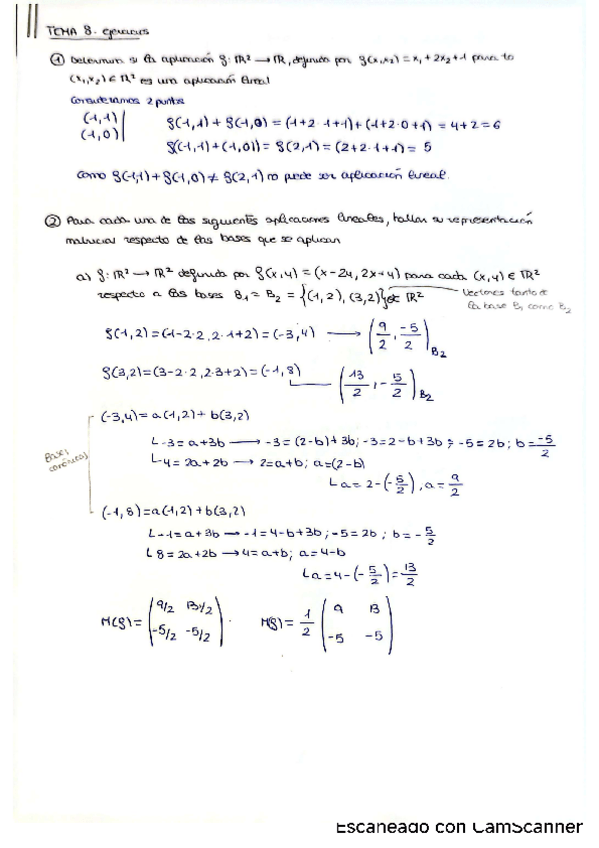 TEMA 8. Ejercicios
① Determinar si la aplicación f: ℝ² → ℝ, definida por f(x₁,x₂) = x₁ + 2x₂ + 1 para to
(x₁,x₂) ∈ ℝ² es una aplicación lineal
Consideramos 2 puntos
(1,1)
(1,0)
f(1,1) + f(1,0) = (1+2·1+1) + (1+2·0+1) = 4+2=6
f((1,1)+(1,0)) = f(2,1) = (2+2·1+1) = 5
Como f(1,1)+f(1,0) ≠ f(2,1) no puede ser aplicación lineal.
② Para cada una de las siguientes aplicaciones lineales, hallar su representación
matricial respecto de las bases que se aplican
a) f: ℝ² → ℝ² definida por f(x,y) = (x-2y, 2x+y) para cada (x,y) ∈ ℝ²
respecto a las bases B₁ = B₂ = {(1,2), (3,2)} de ℝ²
Vectores tanto de
la base B₁ como B₂
f(1,2) = (1-2·2, 2·1+2) = (-3,4) → (9/2, -5/2)B₂
f(3,2) = (3-2·2, 2·3+2) = (-1,8) (13/2, -5/2)B₂
(-3,4) = a(1,2) + b(3,2)
-3 = a+3b → -3 = (2-b)+3b; -3=2-b+3b; -5=2b; b=-5/2
4 = 2a+2b → 2=a+b; a=(2-b)
a=2-(-5/2), a=9/2
(-1,8) = a(1,2) + b(3,2)
-1=a+3b → -1=4-b+3b; -5=2b; b=-5/2
8=2a+2b → 4=a+b; a=4-b
a=4-(-5/2)=13/2
M(f) = (9/2 13/2
-5/2 -5/2)
M(f) = 1/2 (9 13
-5 -5)
Escaneado con CamScanner